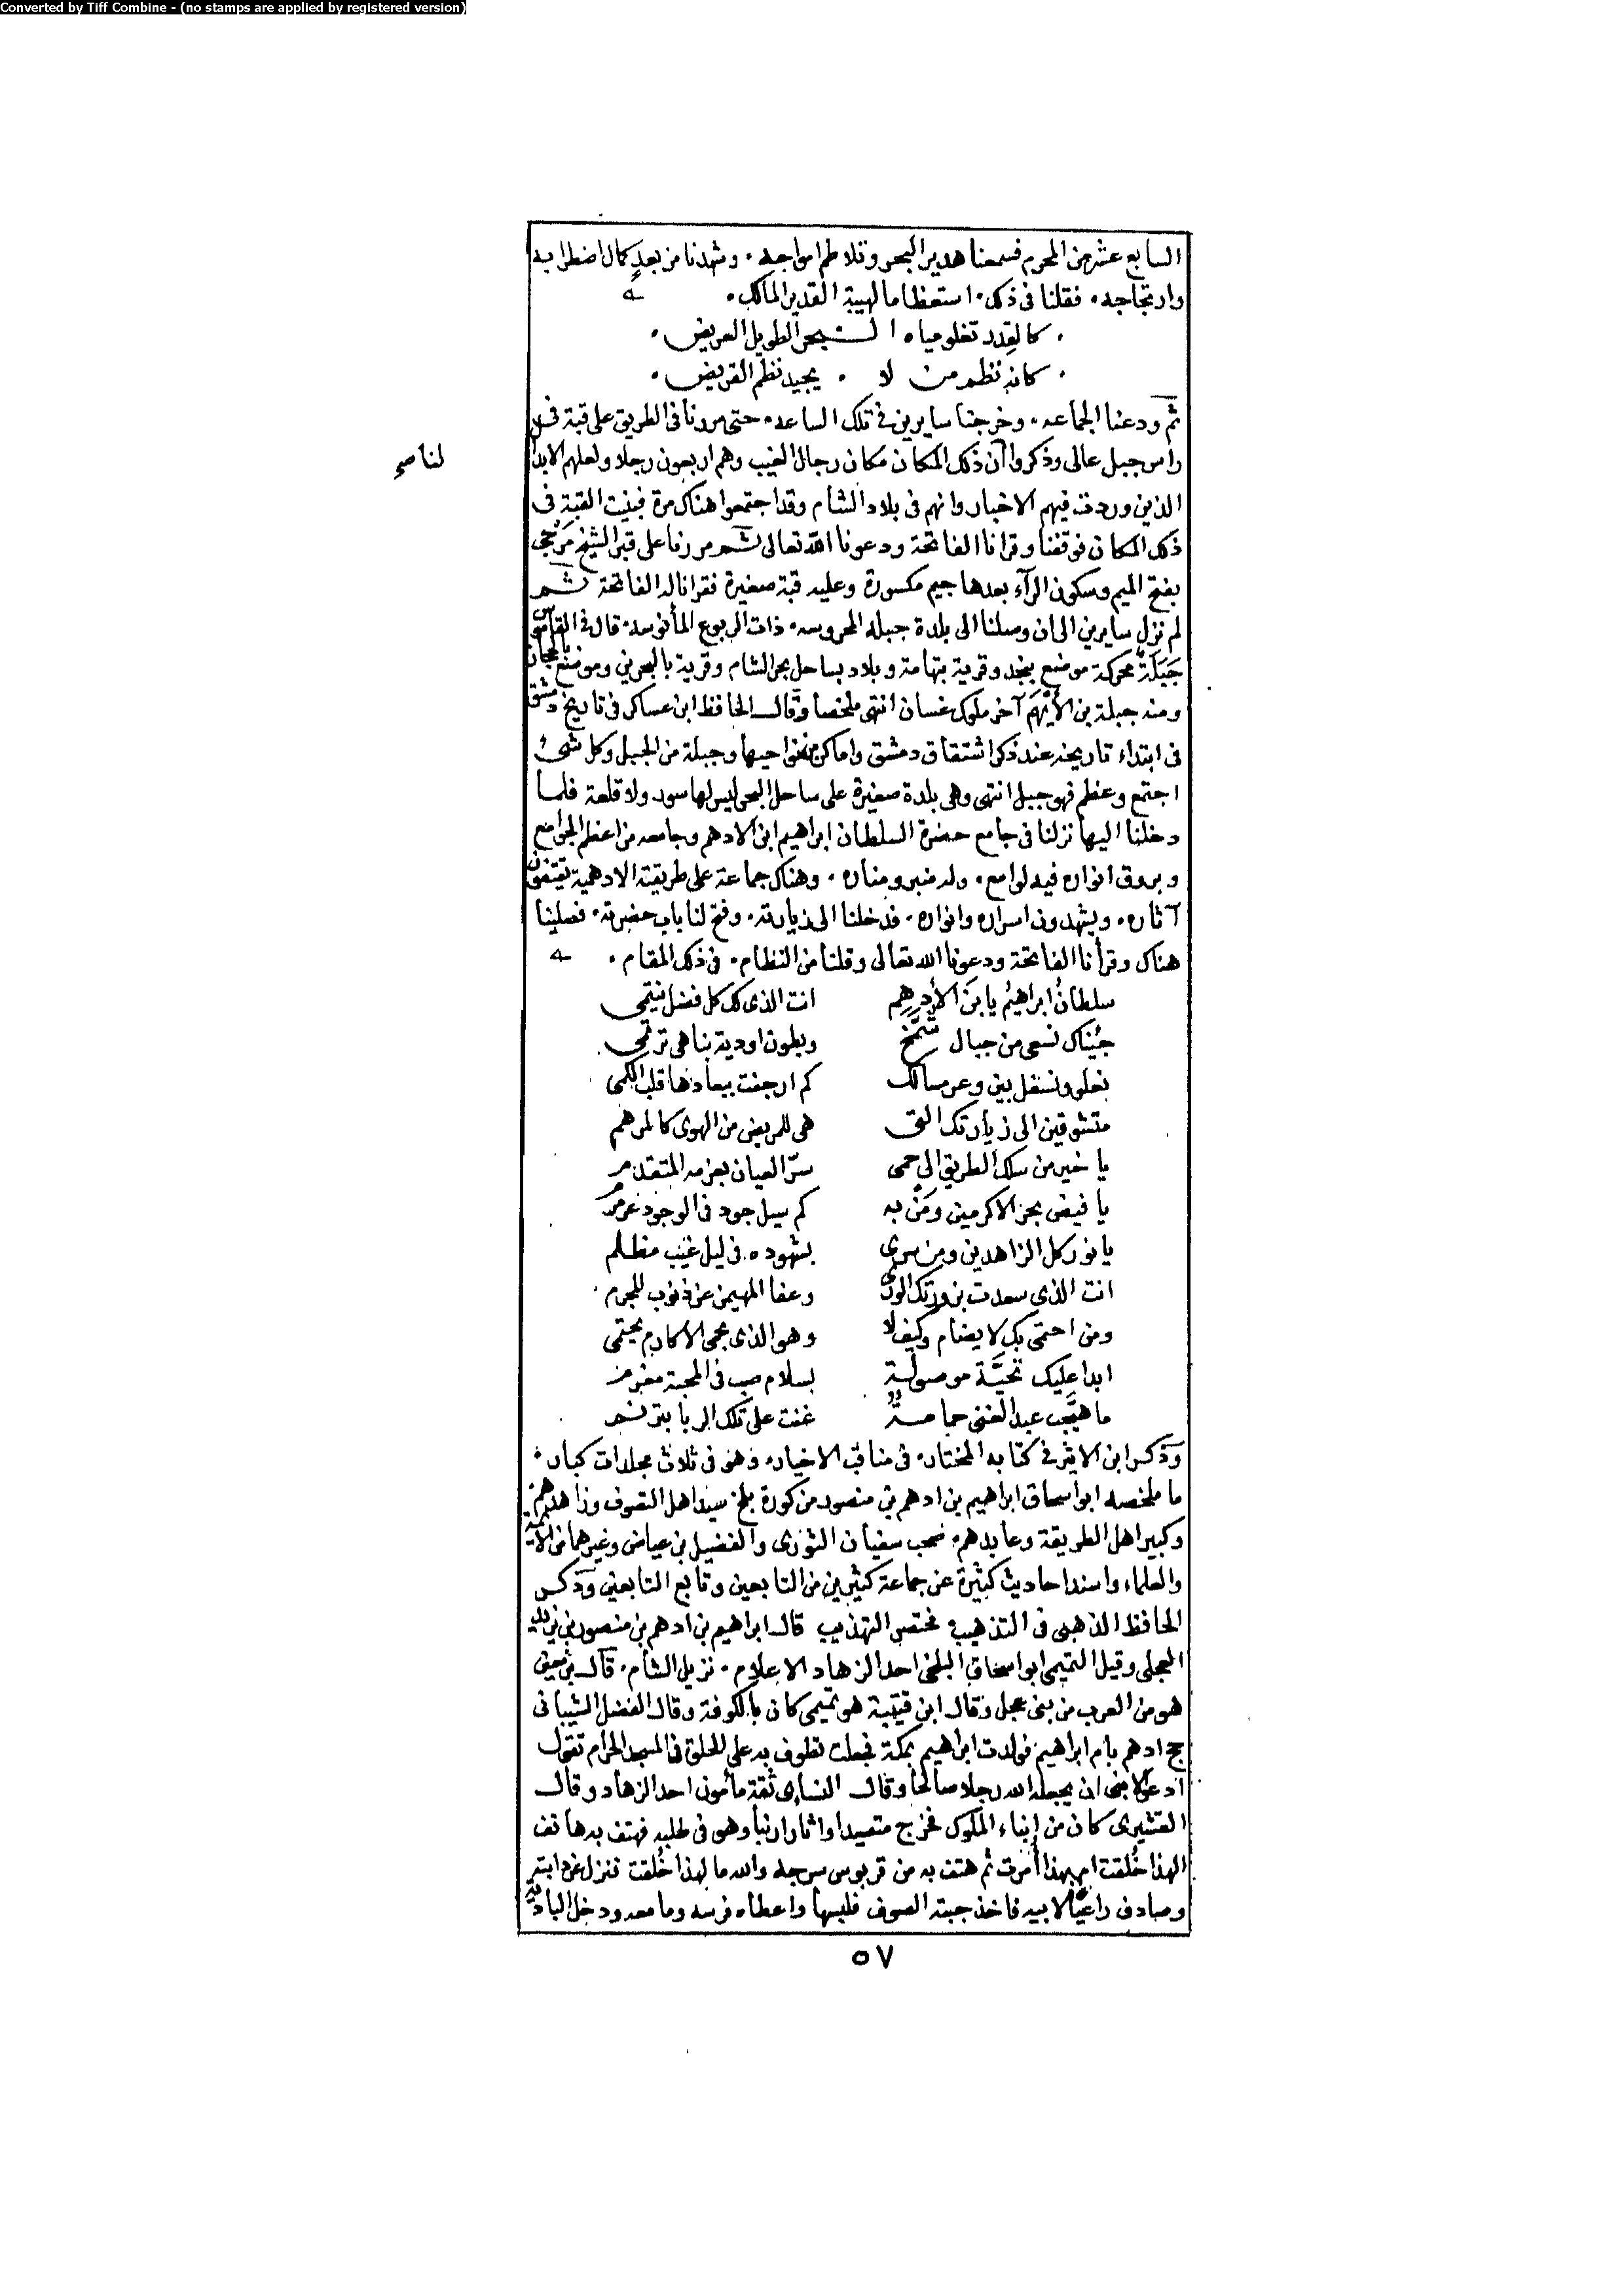 Converted by Tiff Combine - (no stamps are applied by registered version)
السابع عشر من المحرم فسمعنا هدير البحر وتلاطم امواجه . وشهدنا من بعد كمال اضطرابه
وارتجاجه . فقلنا فى ذلك . استعظاما لهيبة القدير المالك .
كالقدر تغلو مياه الـــبحر الطويل العريض .
كانه نظم من لا . يجيد نظم القريض .
ثم ودعنا الجماعه . وخرجنا سايرين فى تلك الساعه . حتى مررنا فى الطريق على قبة فى
راس جبل عالى وذكروا لنا صح أن ذلك المكان مكان رجال الغيب وهم اربعون رجلا ولعلهم الابدال
الذين وردت فيهم الاخبار وانهم فى بلاد الشام وقد اجتمعوا هناك مرة فبنيت القبة فى
ذلك المكان فوقفنا وقرانا الفاتحة ودعونا الله تعالى ثم مررنا على قبر الشيخ مَرْجى
بفتح الميم وسكون الرآء بعدها جيم مكسورة وعليه قبة صغيرة فقرانا له الفاتحة ثم
لم نزل سايرين الى ان وصلنا الى بلدة جبله المحروسه . ذات الربوع المأنوسه . قال فى القاموس
جَبَلَة محركة موضع بنجد وقرية بتهامة وبلاد بساحل بحر الشام وقرية بالبحرين وموضع بالحجاز
ومنه جبلة بن الأيْهَم آخر ملوك غسان انتهى ملخصا وقال الحافظ ابن عساكر فى تاريخ دمشق
فى ابتداء تاريخه عند ذكر اشتقاق دمشق واماكن من نواحيها وجبلة من الجبل وكل شئ
اجتمع وعظم فهو جبل انتهى وهى بلدة صغيرة على ساحل البحر ليس لها سور ولا قلعة فلما
دخلنا اليها نزلنا فى جامع حضرة السلطان ابراهيم ابن الادهم وجامعه من اعظم الجوامع
وبروق انواره فيه لوامع . وله منبر ومناره . وهناك جماعة على طريقته الادهمية يقتفون
آثاره . ويشهدون اسراره وانواره . فدخلنا الى زيارته . وفتح لنا باب حضرته . فصلينا
هناك وقرأنا الفاتحة ودعونا الله تعالى وقلنا من النظام . فى ذلك المقام .
سلطانُ ابراهيمُ يا ابنَ الأدهم انت الذى لك كل فضل ينتمى
جئناك نسعى من جبال شُمَّخ وبطون اودية بنا هى ترتمى
نعلو ونسفل بين وعر مسالك كم ارجفت ببعادها قلب الكمى
متشوقين الى زيارتك التى هى للمريض من الهوى كالمرهم
يا خير من سلك الطريق الى حمى سرّ العيان بعزمه المتقدم
يا فيض بحر الاكرمين ومَنْ به كم سيل جود فى الوجود عرمرم
يا نور كل الزاهدين ومن سرى بشهوده . فى ليل غيب مظلم
انت الذى سعدت بزورتك الورى وعفا المهيمن عن ذنوب المجرم
ومن احتمى بك لا يضام وكيف لا وهو الذى بحمى الاكارم يحتمى
ابدا عليك تحيَّة موصولة بسلام صب فى المحبة مغرم
ما هيَّجت عبد الغنى حمامة غنت على تلك الربا بترنم
وذكر ابن الاثير فى كتابه المختار . فى مناقب الاخيار . وهو فى ثلاث مجلدات كبار .
ما ملخصه ابو اسحاق ابراهيم بن ادهم بن منصور من كورة بلخ سيد اهل التصوف وزاهدهم
وكبير اهل الطريقة وعابدهم . صحب سفيان الثورى والفضيل بن عياض وغيرهما من الايمة
والعلماء واسند احاديث كثيرة عن جماعة كثيرين من التابعين وتابع التابعين وذكر
الحافظ الذهبى فى التذهيب مختصر التهذيب قال ابراهيم بن ادهم بن منصور بن يزيد
العجلى وقيل التميمى ابو اسحاق البلخى احد الزهاد الاعلام . نزيل الشام . قال بن معين
هو من العرب من بنى عجل وقال ابن قتيبة هو تميمى كان بالكوفة وقال الفضل الشيبانى
حج ادهم بام ابراهيم فولدت ابراهيم بمكة فجعلت تطوف به على الحلق فى المسجد الحرام تقول
ادعوا لابنى ان يجعله الله رجلا صالحا وقال النساى ثقة مأمون احد الزهاد وقال
القشيرى كان من ابناء الملوك فخرج متصيدا واثار ارنبا وهو فى طلبه فهتف به هاتف
الهذا خُلقت ام بهذا أُمرت ثم هتف به من قربوس سرجه والله ما لهذا خُلقت فنزل عن دابته
وصادف راعيًا لابيه فاخذ جبته الصوف فلبسها واعطاه فرسه وما معه ودخل البادية
٥٧